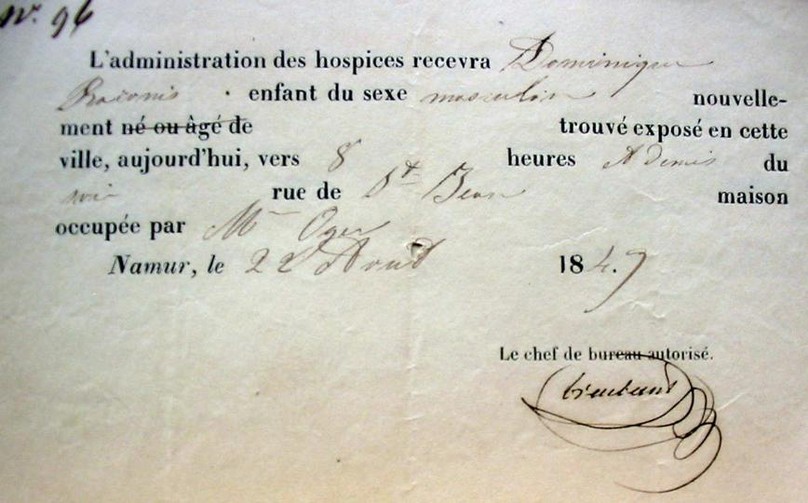 N°. 96
L'administration des hospices recevra Dominique
enfant du sexe masculin nouvelle-
ment né ou âgé de trouvé exposé en cette
ville, aujourd'hui, vers 8 heures & Demie du
soir rue de St Jean maison
occupée par Mr Oger
Namur, le 22 Aout 1847
Le chef de bureau autorisé.